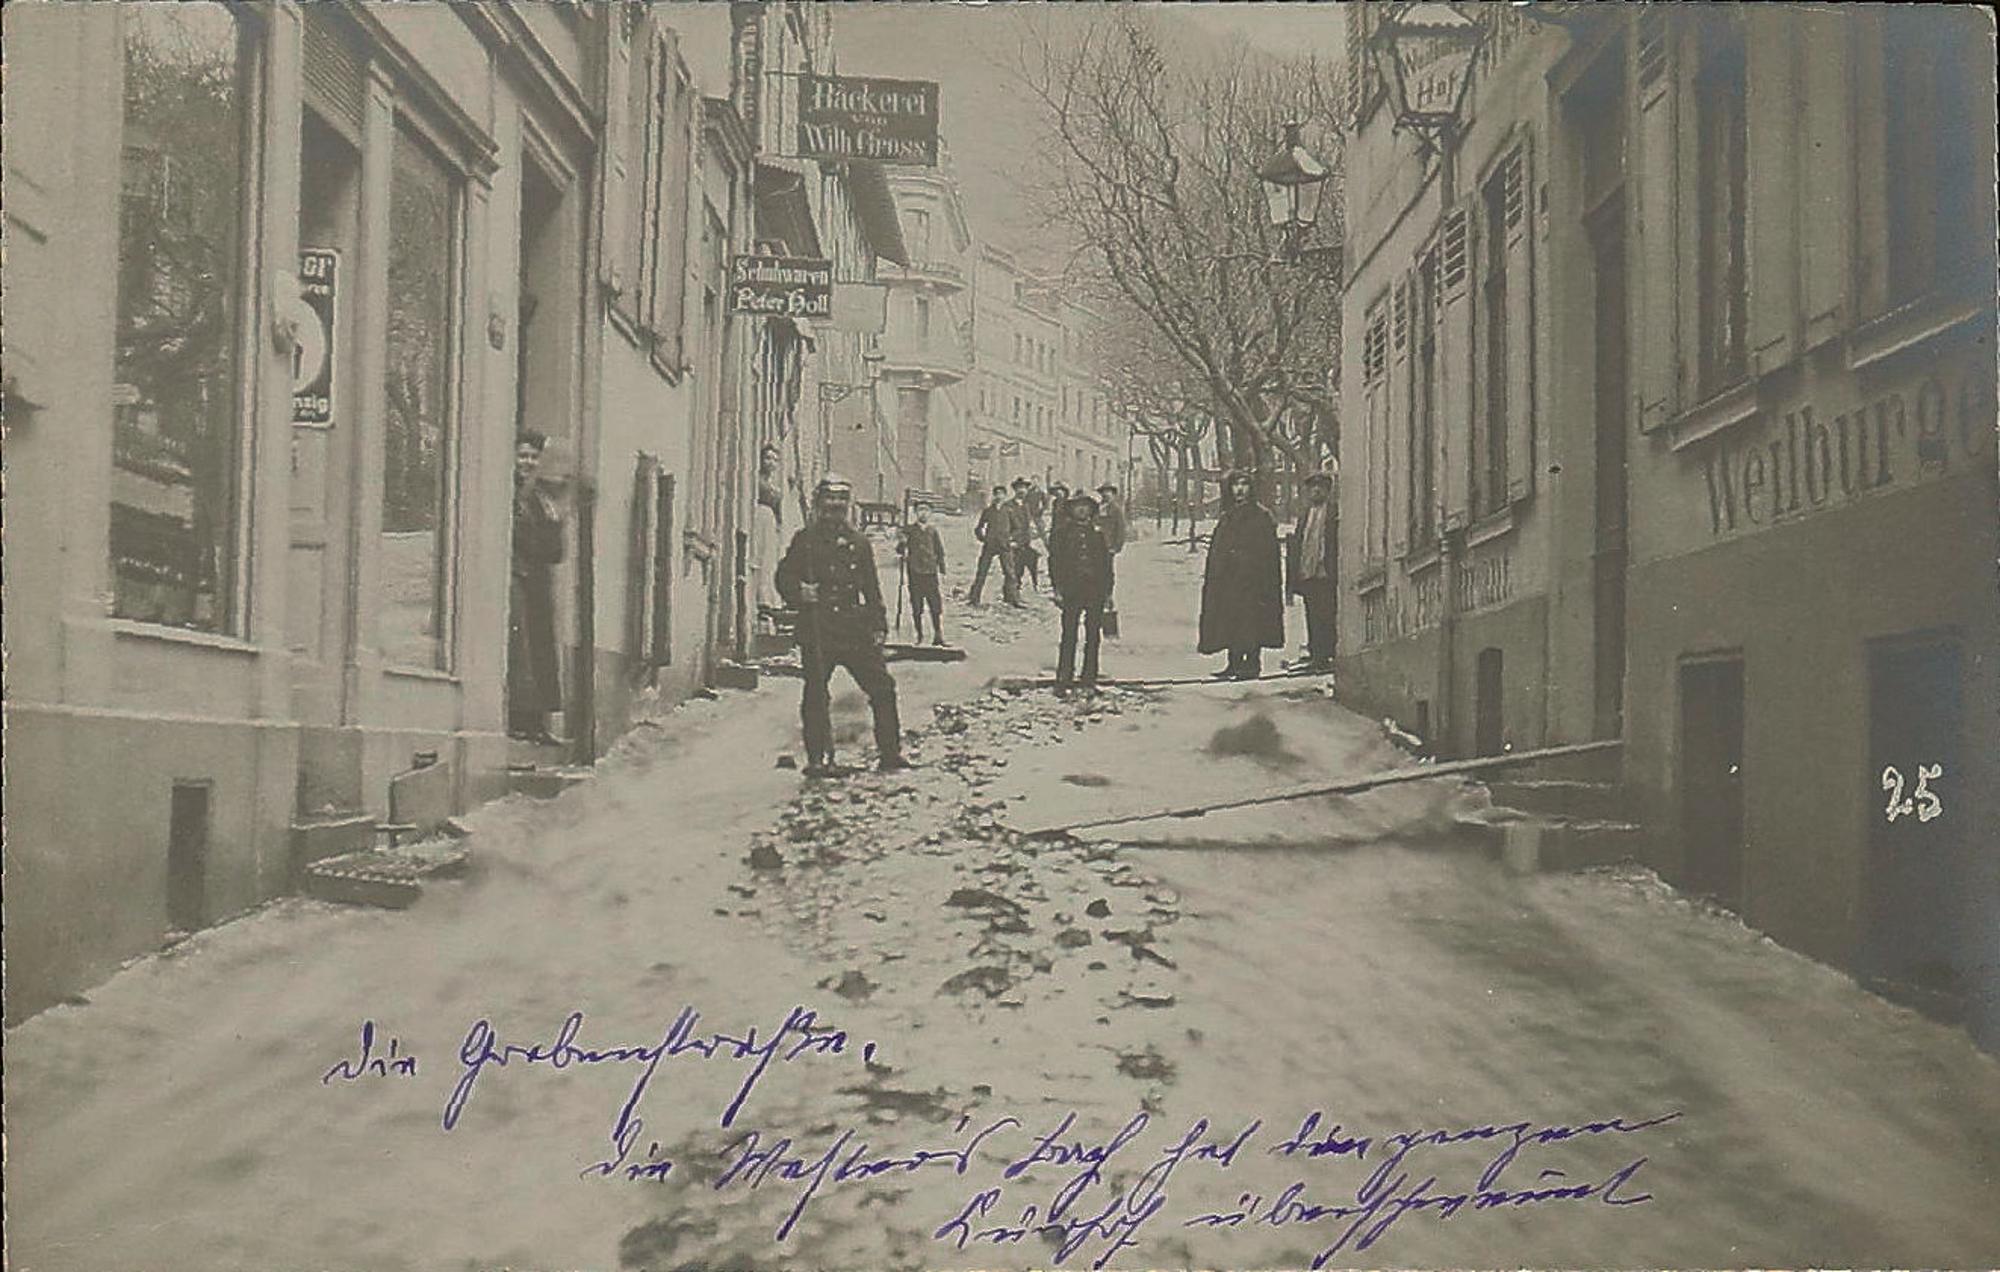 Bäckerei
von
Wilh. Gross
Schuhwaren
Peter Holl
Hof
nzig
Weilburge
25
die Grabenstraße.
die Bach hat den ganzen
Kurhof überschwemmt